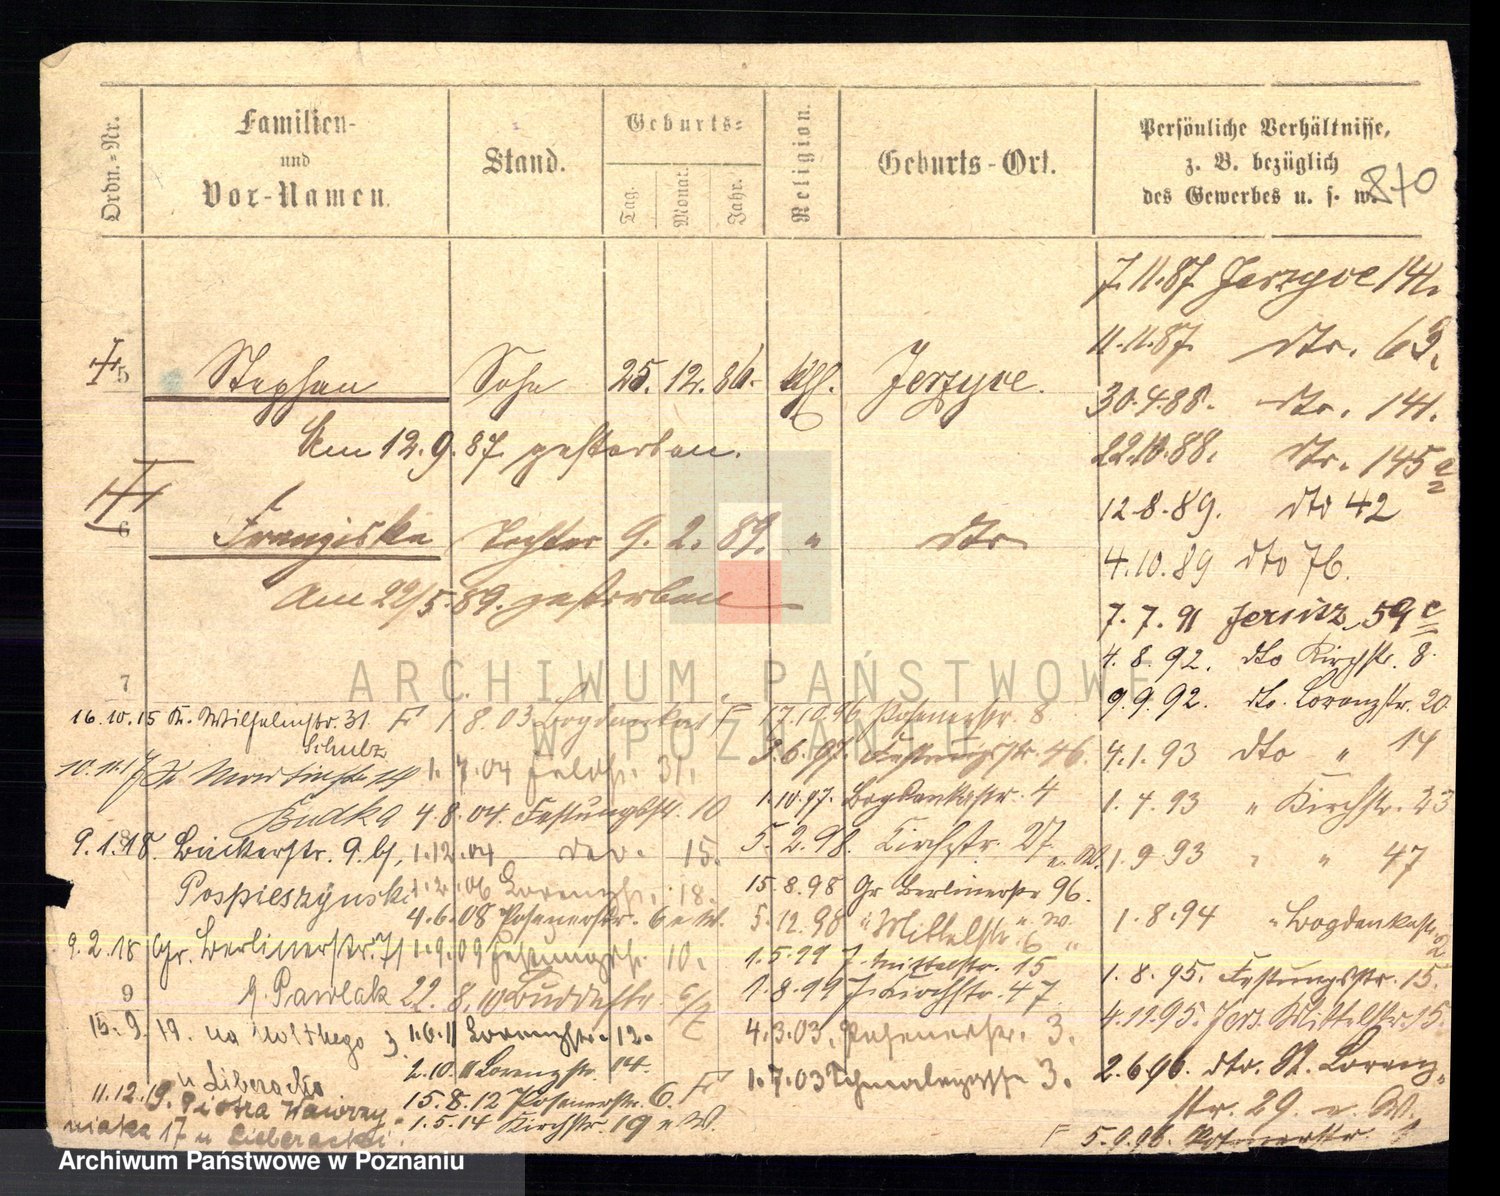 Ordn.-Nr.
Familien-
und
Vor-Namen.
Stand.
Geburts-
Tag.
Monat.
Jahr.
Religion.
Geburts-Ort.
Persönliche Verhältnisse,
z. B. bezüglich
des Gewerbes u. s. w.
840
7.11.87 Jerzyce 141.
11.11.87. dto. 63.
5 Stephan Sohn 25. 12. 86. kth. Jerzyce.
30.4.88. dto. 141.
Am 12.9.87 gestorben.
22.10.88. dto. 145
12.8.89. dto 42
6 Franziska Tochter 9. 2. 89. " dto
4.10.89 dto 76.
Am 22/5.89. gestorben
7.7.91 Jersitz 59 c
4.8.92. dto Kirchstr. 8.
7
9.9.92. dto. Lorenzstr. 20
16.10.15 Kr. Wilhelmstr. 31
Schulz
F 1.8.03 Bogdankastr F
17.10.96 Posenerstr. 8
4.1.93 dto " 14
10.11.17 St Martinstr.
Budka
1.7.04 Feldstr. 31.
3.6.97. Festungsstr. 46.
1.4.93 " Kirchstr. 23
4.8.04. Festungsstr. 10
1.10.97. Bogdankastr. 4
9.1.18. Bäckerstr. 9. bei
Pospieszyński
1.12.04 dto. 15.
5.2.98. Kirchstr. 27
e. W.
1.9.93 " " 47
1.2.06 Lorenzstr. 18.
15.8.98 Gr Berlinerstr 96.
4.6.08 Posenerstr. 6 e W.
5.12.98 " Mittelstr. 6 e. W.
1.8.94 " Bogdankastr. 2
9.2.18 Gr. Berlinerstr. 71
1.9.09 Festungsstr. 10.
1.5.99 J. Mittelstr. 15
1.8.95. Festungsstr. 15.
9
G. Pawlak
22.8.10 Buddestr.
1.8.99 J. Kirchstr. 47
4.11.95. Jers. Mittelstr. 15.
15.9.19. na Noltkego 3
u Liberacka
1.6.11 Lorenzstr. 12.
4.3.03. Posenerstr. 3.
2.10.11 Lorenzstr. 14.
2.6.96. dto. St. Lorenz-
str. 29. e. W.
11.12.19. Piotra Wawrzy-
niaka 17 u Liberacki.
15.8.12 Posenerstr. 6. F
1.7.03 3.
1.5.14 Kirchstr. 19 e W.
F 5.9.96. Posenerstr.
ARCHIWUM PAŃSTWOWE
W POZNANIU
Archiwum Państwowe w Poznaniu